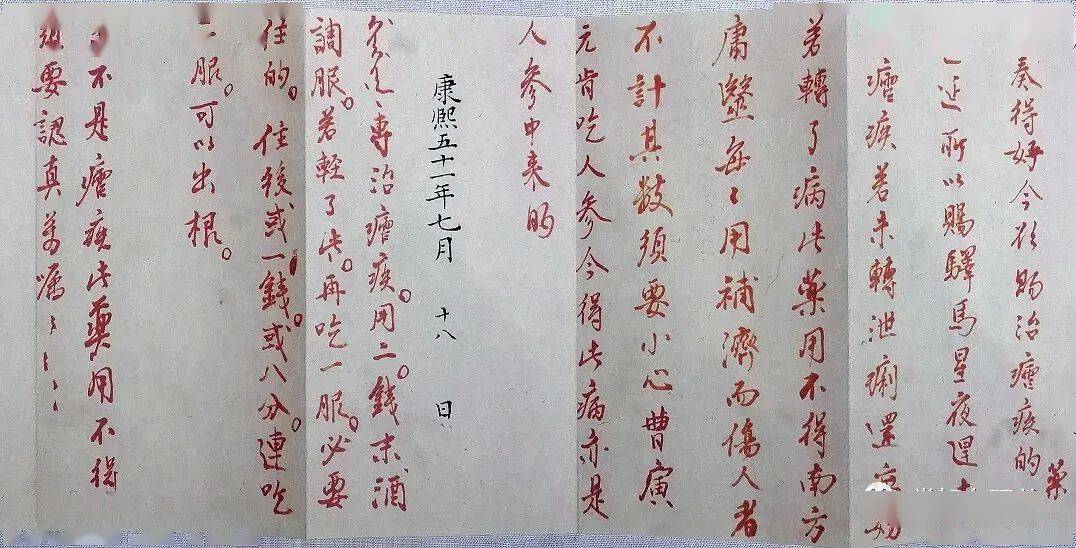 奏得好今欲賜治瘧疾的藥
延所以賜驛馬星夜趕
瘧疾若未轉泄痢還無妨
若轉了病此藥用不得南方
庸醫每〻用補濟而傷人者
不計其數須要小心曹寅
元肯吃人參今得此病亦是
人參中来的
康熙五十一年七月 十八 日
專治瘧疾。用二錢末酒
調服。若輕了些。再吃一服。必要
住的。住後或一錢。或八分。連吃
服。可以出根。
不是瘧疾此藥用不得
須要認真萬囑〻〻〻〻